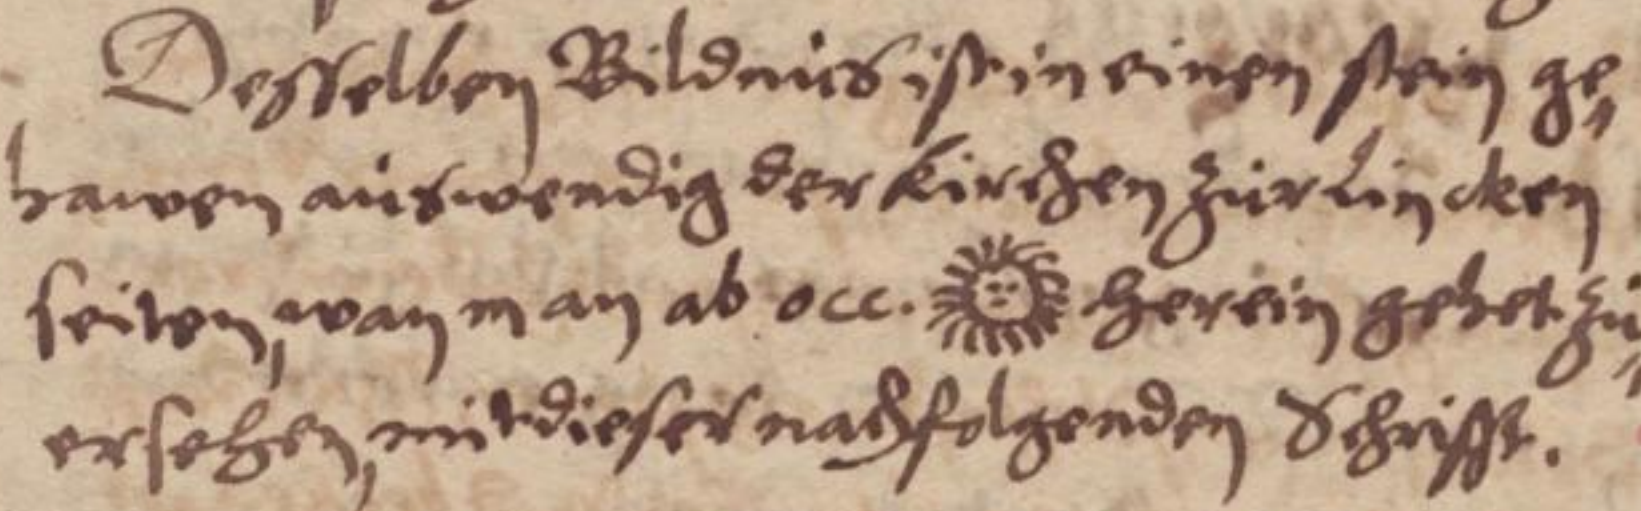 Desselben Bildnus ist in einen stein ge„
hawen auswendig der Kirchen zur lincken
seiten, wan man ab occ. ☉ herein gehet zu
ersehen, mit dieser nachfolgenden Schrifft.